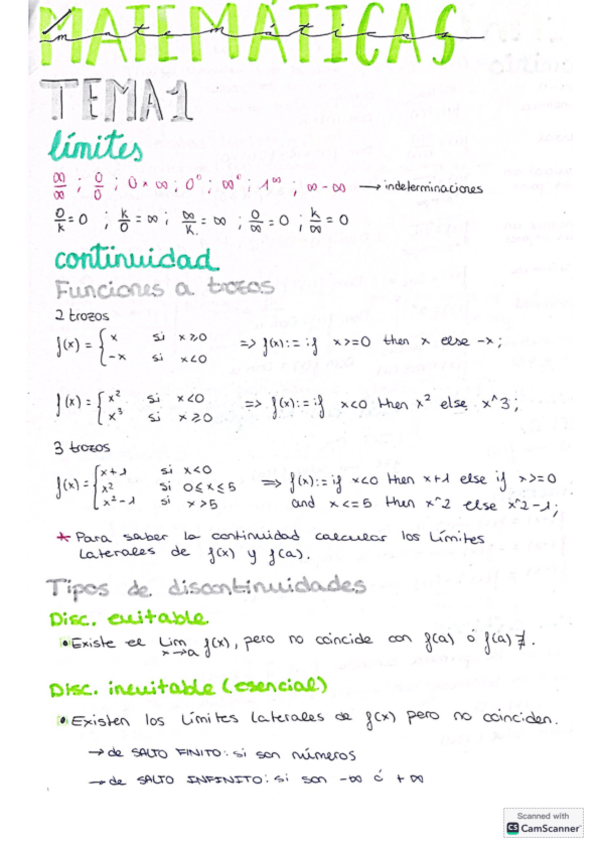 MATEMÁTICAS
matemáticas
TEMA 1
límites
∞/∞ ; 0/0 ; 0 × ∞ ; 0⁰ ; ∞⁰ ; 1^∞ ; ∞ - ∞ → indeterminaciones
0/k = 0 ; k/0 = ∞ ; ∞/k = ∞ ; 0/∞ = 0 ; k/∞ = 0
continuidad
Funciones a trozos
2 trozos
f(x) = { x si x ≥ 0 => f(x) := if x >= 0 then x else -x;
-x si x < 0
f(x) = { x² si x < 0 => f(x) := if x < 0 then x² else x^3;
x³ si x ≥ 0
3 trozos
f(x) = { x+1 si x < 0 => f(x) := if x < 0 then x+1 else if x >= 0
x² si 0 ≤ x ≤ 5 and x <= 5 then x^2 else x^2-1;
x²-1 si x > 5
* Para saber la continuidad calcular los límites
laterales de f(x) y f(a).
Tipos de discontinuidades
Disc. evitable
• Existe el lim x→a f(x), pero no coincide con f(a) ó f(a) ∄.
Disc. inevitable (esencial)
• Existen los límites laterales de f(x) pero no coinciden.
→ de SALTO FINITO: si son números
→ de SALTO INFINITO: si son -∞ ó +∞
Scanned with
CS CamScanner